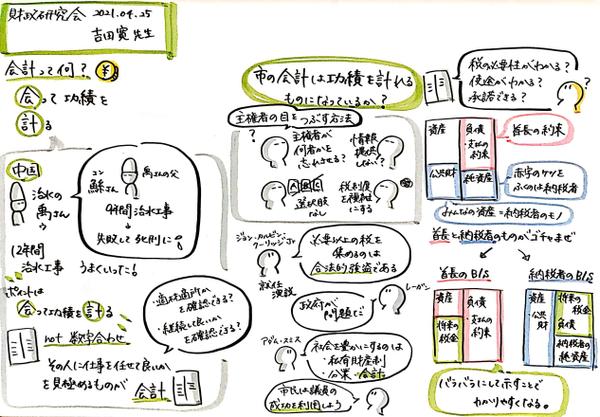 財政研究会 2021.04.25
吉田寛先生
会計って何？
会って功績を
計る
中国
治水の
禹さん
コン
鯀さん
禹さんの父
9年間治水工事
失敗して死刑に
12年間
治水工事
うまくいった！
ポイントは
会って功績を計る
not 数字合わせ
その人に仕事を任せて良いか
を見極めるものが 会計
・適材適所か
を確認できる？
・継続して良いか
を確認できる？
市の会計は功績を計れる
ものになっているか？
主権者の目を
つぶす方法
主権者が
何者かを
忘れさせる？
情報
提供
しない？
選択肢
なし
税制度
を複雑
にする
ジョン・カルビン・
クーリッジJr
就任
演説
必要以上の税を
集めるのは
合法的強盗である
政府が
問題だ
レーガン
アダム・スミス
社会を豊かにするのは
・私有財産制
・公業・会計
市民は議員の
成功を利用しよう
税の必要性がわかる？
使途がわかる？
承諾できる？
資産
負債
・支払の
約束
公共財
純資産
首長の約束
赤字のツケを
ふくのは納税者
みんなの資産＝納税者のモノ
首長と納税者のものがゴチャまぜ
首長のB/S
資産
将来の
税金
負債
・支払の
約束
納税者のB/S
資産
公共
財
将来の
税金
負債
納税者の
純資産
バラバラにして示すことで
わかりやすくなる。